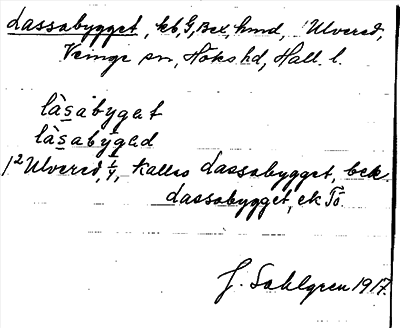 Lassabygget, kb, G, Bex, hmd, Ulvered,
Veinge sn, Höks hd, Hall. l.
làsabygət
làsabygəd
1/2 Ulvered, 1/4, kallas Lassabygget, bek.
Lassabygget, ek Tö.
J. Sahlgren 1917.